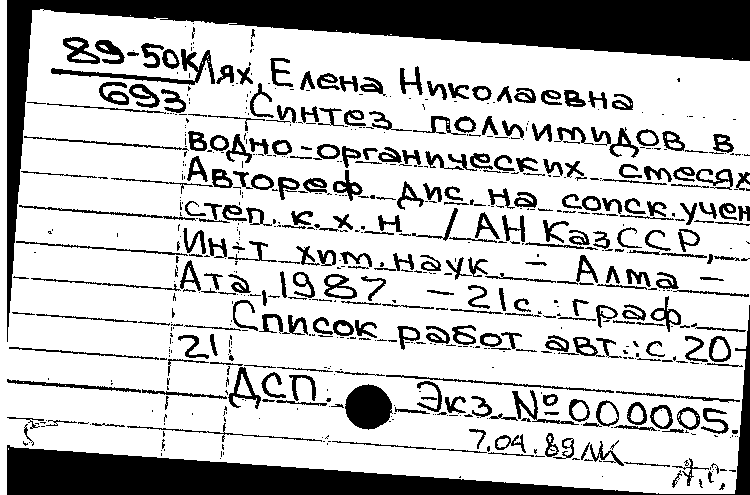 89-50к Лях, Елена Николаевна
693 Синтез полиимидов в
водно-органических смесях
Автореф. дис. на соиск. учен
степ. к. х. н. / АН КазССР,
Ин-т хим. наук. - Алма -
Ата, 1987. - 21с. : граф.
Список работ авт.: с. 20-
21.
ДСП. Экз. № 000005.
7.04.89 ЛК
А.С.